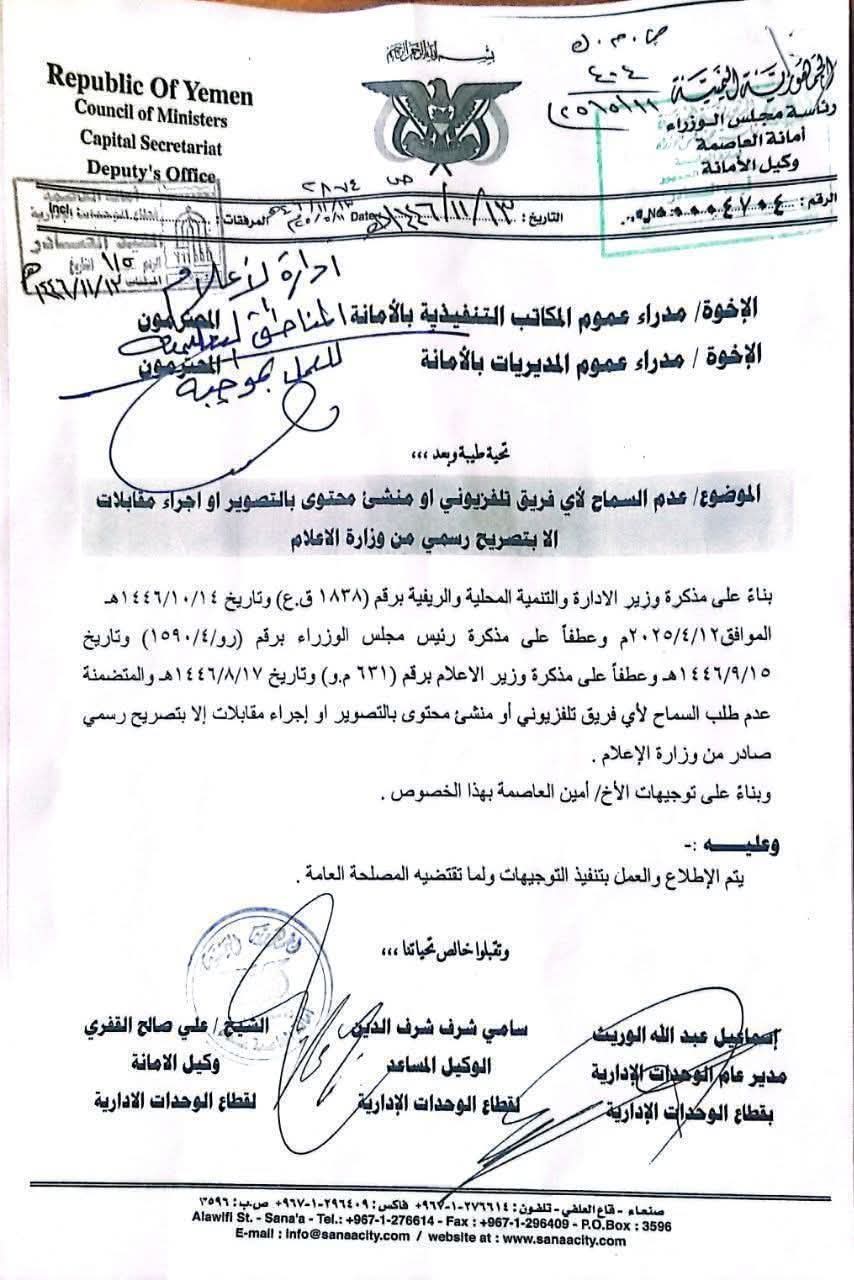 بسم الله الرحمن الرحيم
Republic Of Yemen
Council of Ministers
Capital Secretariat
Deputy's Office
الجمهورية اليمنية
رئاسة مجلس الوزراء
أمانة العاصمة
وكيل الأمانة
الرقم : 0004704
التاريخ : ١٤٤٦/١١/١٣ Date
المرفقات : Incl
ادارة الأعلام
المناطق التعليمية
للعمل بموجبه
الإخوة/ مدراء عموم المكاتب التنفيذية بالأمانة المحترمون
الإخوة / مدراء عموم المديريات بالأمانة المحترمون
تحية طيبة وبعد ،،،
الموضوع/ عدم السماح لأي فريق تلفزيوني او منشئ محتوى بالتصوير او اجراء مقابلات
الا بتصريح رسمي من وزارة الاعلام
بناءً على مذكرة وزير الادارة والتنمية المحلية والريفية برقم (١٨٣٨ ق.ع) وتاريخ ١٤٤٦/١٠/١٤هـ
الموافق٢٠٢٥/٤/١٢م وعطفاً على مذكرة رئيس مجلس الوزراء برقم (رو/١٥٩٠/٤) وتاريخ
١٤٤٦/٩/١٥هـ وعطفاً على مذكرة وزير الاعلام برقم (٦٣١ م.و) وتاريخ ١٤٤٦/٨/١٧هـ والمتضمنة
عدم طلب السماح لأي فريق تلفزيوني أو منشئ محتوى بالتصوير او إجراء مقابلات إلا بتصريح رسمي
صادر من وزارة الإعلام .
وبناءً على توجيهات الأخ/ أمين العاصمة بهذا الخصوص .
وعليـــــه :-
يتم الإطلاع والعمل بتنفيذ التوجيهات ولما تقتضيه المصلحة العامة .
وتقبلوا خالص تحياتنا ،،،
إسماعيل عبد الله الوريث
مدير عام الوحدات الإدارية
بقطاع الوحدات الإدارية
سامي شرف شرف الدين
الوكيل المساعد
لقطاع الوحدات الإدارية
الشيخ / علي صالح القفري
وكيل الامانة
لقطاع الوحدات الادارية
صنعاء - قاع العلفي - تلفون : ٢٧٦٦١٤-١-٩٦٧+ فاكس : ٢٩٦٤٠٩-١-٩٦٧+ ص.ب : ٣٥٩٦
Alawifi St. - Sana'a - Tel.: +967-1-276614 - Fax : +967-1-296409 - P.O.Box : 3596
E-mail : info@sanaacity.com / website at : www.sanaacity.com